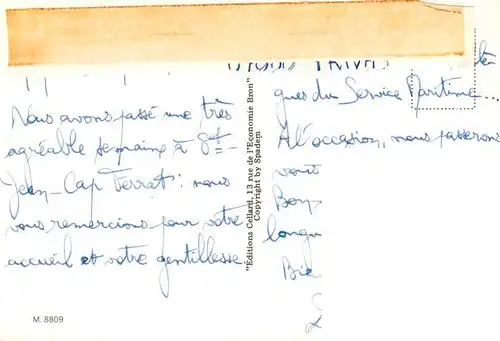 Nous avons passé une très
agréable semaine à St-
Jean-Cap Ferrat : nous
vous remercions pour votre
accueil et votre gentillesse.
M. 8809
"Editions Cellard, 13 rue de l'Economie Bron"
Copyright by Spadem
ques du Service Maritime...
A l'occasion, nous passerons
vous
Bon
longu
Bie